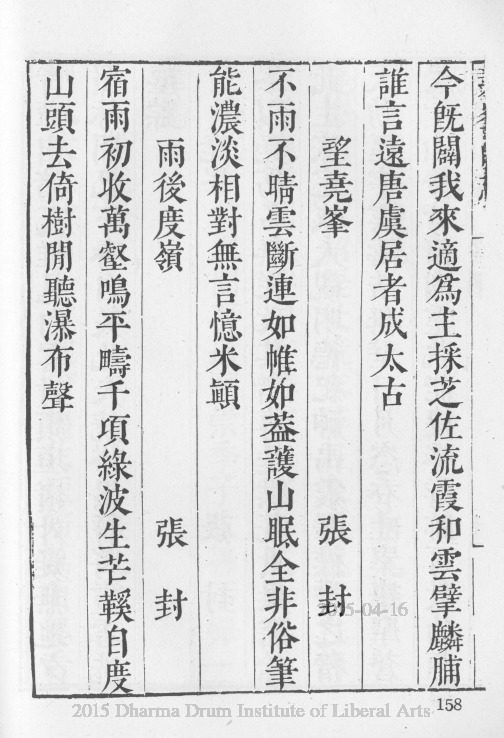 今旣闢我來適爲主採芝佐流霞和雲擘麟脯
誰言遠唐虞居者成太古
望堯峯 張封
不雨不晴雲斷連如帷如葢護山眠全非俗筆
能濃淡相對無言憶米顚
雨後度嶺 張封
宿雨初收萬壑鳴平疇千項綠波生芒鞵自度
山頭去倚樹閒聽瀑布聲
5-04-16
158
2015 Dharma Drum Institute of Liberal Arts